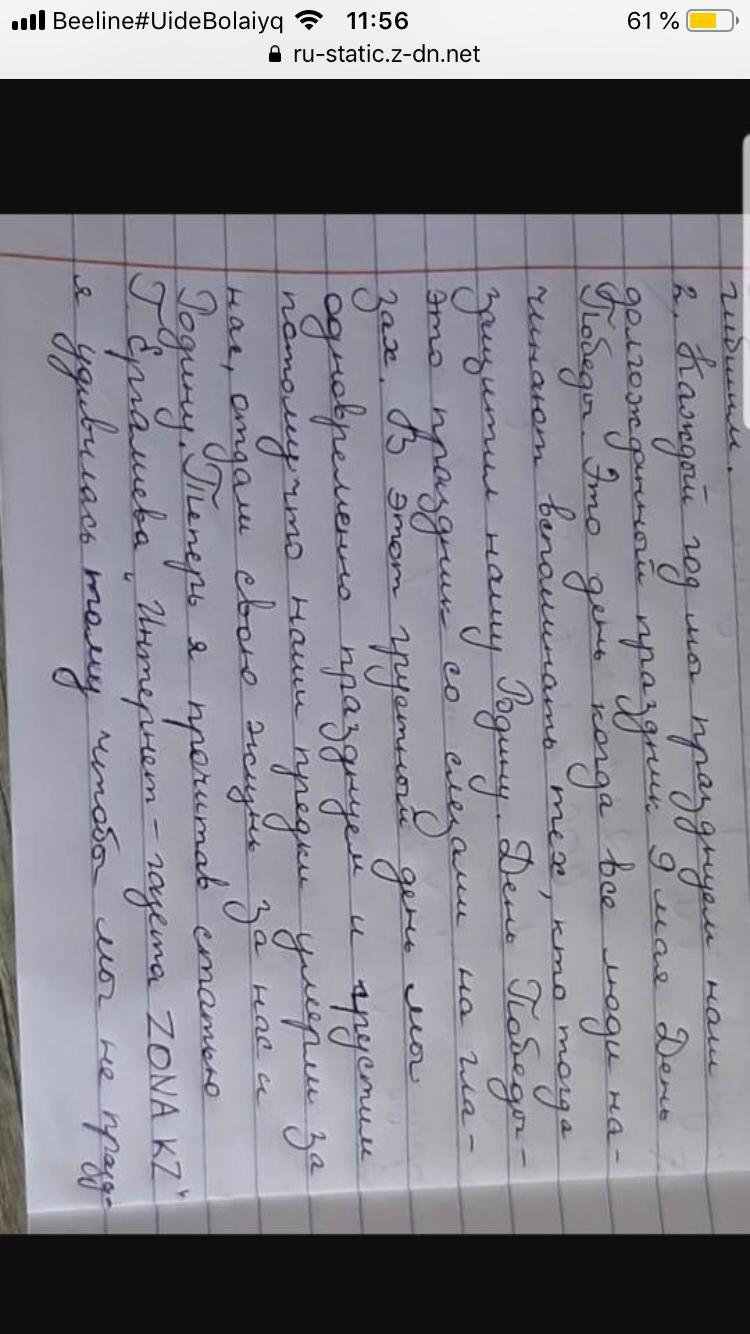 Beeline#UideBolaiyq 11:56 61 %
ru-static.z-dn.net
гибшим.
2. Каждый год мы празднуем наш
долгожданный праздник 9 мая День
Победы. Это день когда все люди на-
чинают вспоминать тех, кто тогда
защитил нашу Родину. День Победы-
это праздник со слезами на гла-
зах. В этот грустный день мы
одновременно празднуем и грустим
потомучто наши предки умерли за
нас, отдали свою жизнь за нас и
Родину. Теперь я прочитав статью
Т. Ергалиева "Интернет-газета ZONA KZ"
я удивилась тому чтобы мы не празд-